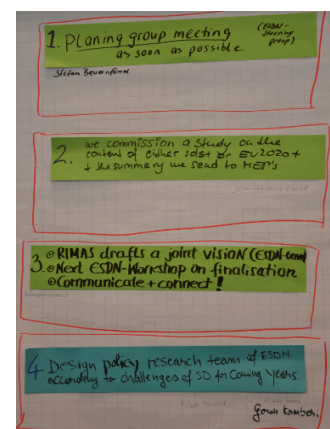 1. Planing group meeting
as soon as possible
(ESDN-
steering
group)
Stefan Bauernfeind
2. we commission a study on the
content of either 2015+ or EU2020+
+ the summary we send to MEP's
3. RIMAS drafts a joint vision (ESDN-
Next ESDN-Workshop on finalisation
Communicate + connect!
4 Design policy research team of ESDN
according to challenges of SD for coming years.